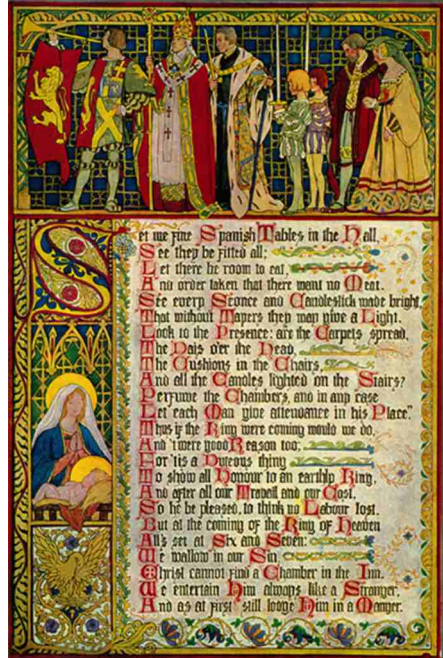 Set me fine Spanish Tables in the Hall,
See they be fitted all;
Let there be room to eat,
And order taken that there want no Meat.
See every Sconce and Candlestick made bright,
That without Tapers they may give a Light.
Look to the Presence: are the Carpets spread,
The Dais o'er the Head,
The Cushions in the Chairs,
And all the Candles lighted on the Stairs?
Perfume the Chambers, and in any case
Let each Man give attendance in his Place."
Thus if the King were coming would we do,
And 'twere good Reason too;
For 'tis a Duteous thing
To show all Honour to an earthly King,
And after all our Travail and our Cost,
So he be pleased, to think no Labour lost.
But at the coming of the King of Heaven
All's set at Six and Seven:
We wallow in our Sin,
Christ cannot find a Chamber in the Inn.
We entertain Him always like a Stranger,
And as at first still lodge Him in a Manger.